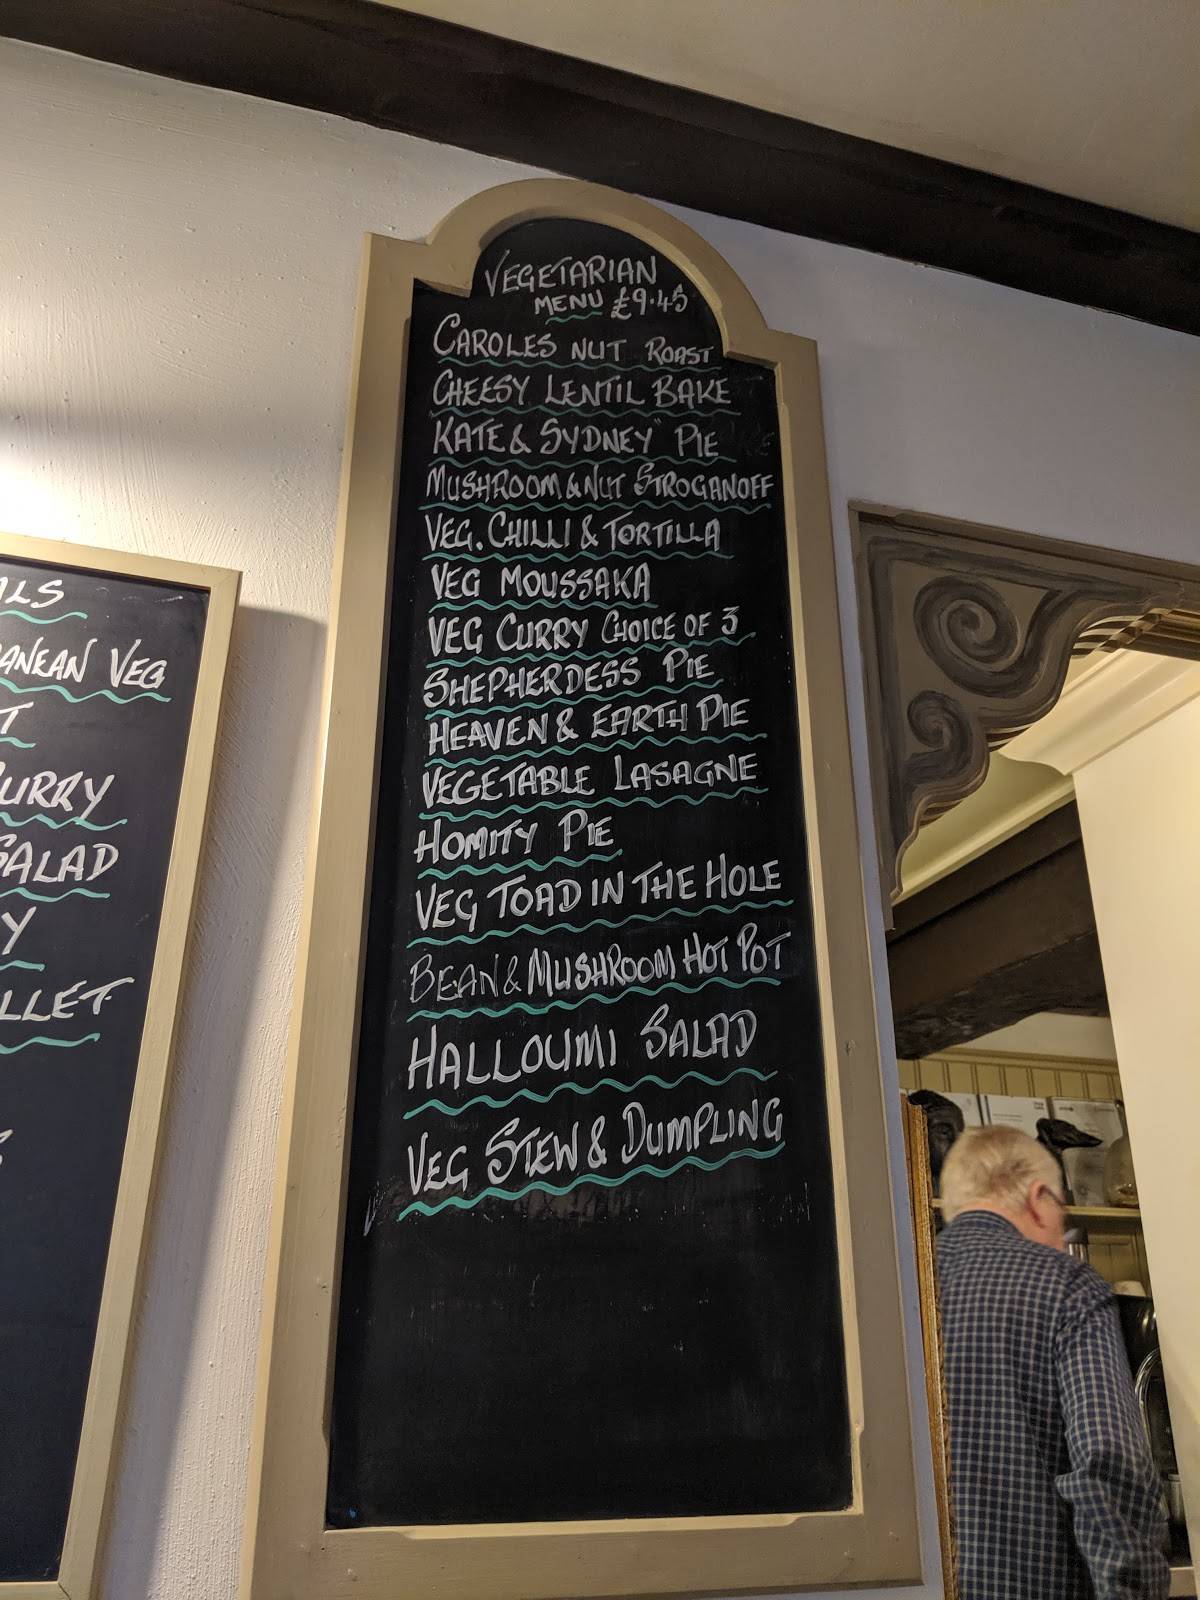 VEGETARIAN
MENU £9.45
CAROLES NUT ROAST
CHEESY LENTIL BAKE
KATE & SYDNEY" PIE
MUSHROOM & NUT STROGANOFF
VEG. CHILLI & TORTILLA
VEG MOUSSAKA
VEG CURRY CHOICE OF 3
SHEPHERDESS PIE
HEAVEN & EARTH PIE
VEGETABLE LASAGNE
HOMITY PIE
VEG TOAD IN THE HOLE
BEAN & MUSHROOM HOT POT
HALLOUMI SALAD
VEG STEW & DUMPLING
VEG
CURRY
SALAD